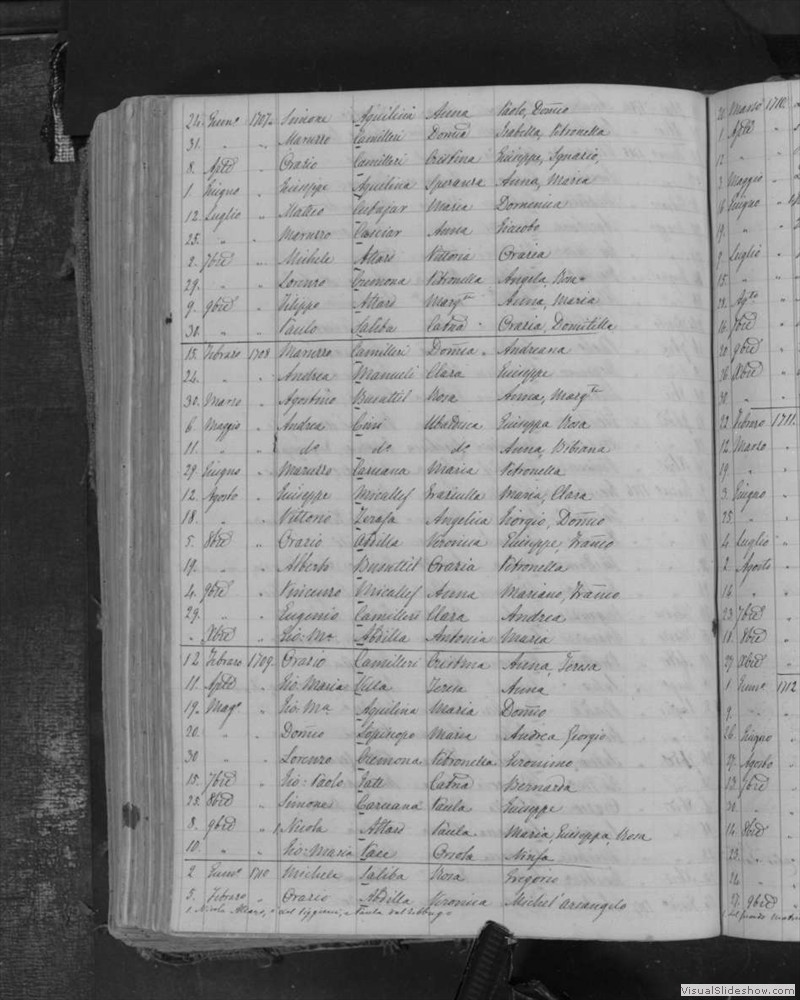 24. Genn.o 1707. Simone Aquilina Anna Paolo, Dom̅co
31. " " Maruzzo Camilleri Dom̅ca Isabella, Petronella
8. Aple " Orazio Camilleri Cristina Giuseppe, Ignazio,
1. Giugno " Giuseppe Aquilina Speranza Anna, Maria
12. Luglio " Matteo Maria Domenica
25. " " Maruzzo Anna Giacobo
2. 7bre " Michele Attard Vittoria Orazia
29. " " Lorenzo Cremona Petronella Angela, Rosa
9. 9bre " Filippo Attard Marg.ta Anna, Maria
30. " " Paulo Saliba Cat̅na Orazia, Domitilla
15. Febraro 1708 Maruzzo Camilleri Dom̅ca Andreana
24. " " Andrea Manueli Clara Giuseppe
30. Marzo " Agostino Busuttil Rosa Anna, Marg.ta
6. Maggio " Andrea Cini Ubaldesca Giuseppa Rosa
11. " " do do do Anna, Bibiana
29. Giugno " Maruzzo Caruana Maria Petronella
12. Agosto " Giuseppe Micallef Graziulla Maria, Clara
18. " " Vittorio Angelica Giorgio, Dom̅co
5. 8bre " Orazio Abdilla Veronica Giuseppe, Fran̅co
19. " " Alberto Busuttil Orazia Petronella
4. 9bre " Vincenzo Micallef Anna Mariano, Fran̅co
29. " " Eugenio Camilleri Clara Andrea
" Xbre " Gio: Ma Abdilla Antonia Maria
12 Febraro 1709. Orazio Camilleri Cristina Anna, Teresa
11. Aple " Gio: Maria Vella Teresa Anna
19. Mago " Gio: Ma Aquilina Maria Dom̅co
20. " " Dom̅co Maria Andrea Giorgio
30 " " Lorenzo Cremona Petronella Geronimo,
15. 7bre " Gio: Paolo Cat̅na Bernarda
23. 8bre " Simone Caruana Paula Giuseppe
8. 9bre " 1 Nicola Attard Paula Maria, Giuseppa, Rosa
10. " " Gio: Maria Pace Orsola Ninfa
2 Genno 1710 Michele Saliba Rosa Gregorio
5. Febraro " Orazio Abdilla Veronica Michel' Arcangelo
1 Nicola Attard, e Paula dal Zebbug
20. Marzo 1710.
1. Aple
12 "
3. Maggio "
Giugno "
19. "
9. Luglio "
15. "
Agto
16. 7bre
20. 9bre
Xbre
30. "
22. Febraro 1711.
12. Marzo "
19 "
3. Giugno "
25. "
4. Luglio "
2. Agosto "
16. "
23. 7bre
18. 8bre
27. Xbre
1. Genno 1712
9. "
26. Giugno "
27. Agosto "
13. 7bre
20. "
14. 8bre
23. "
24. "
27. 9bre
VisualSlideshow.com